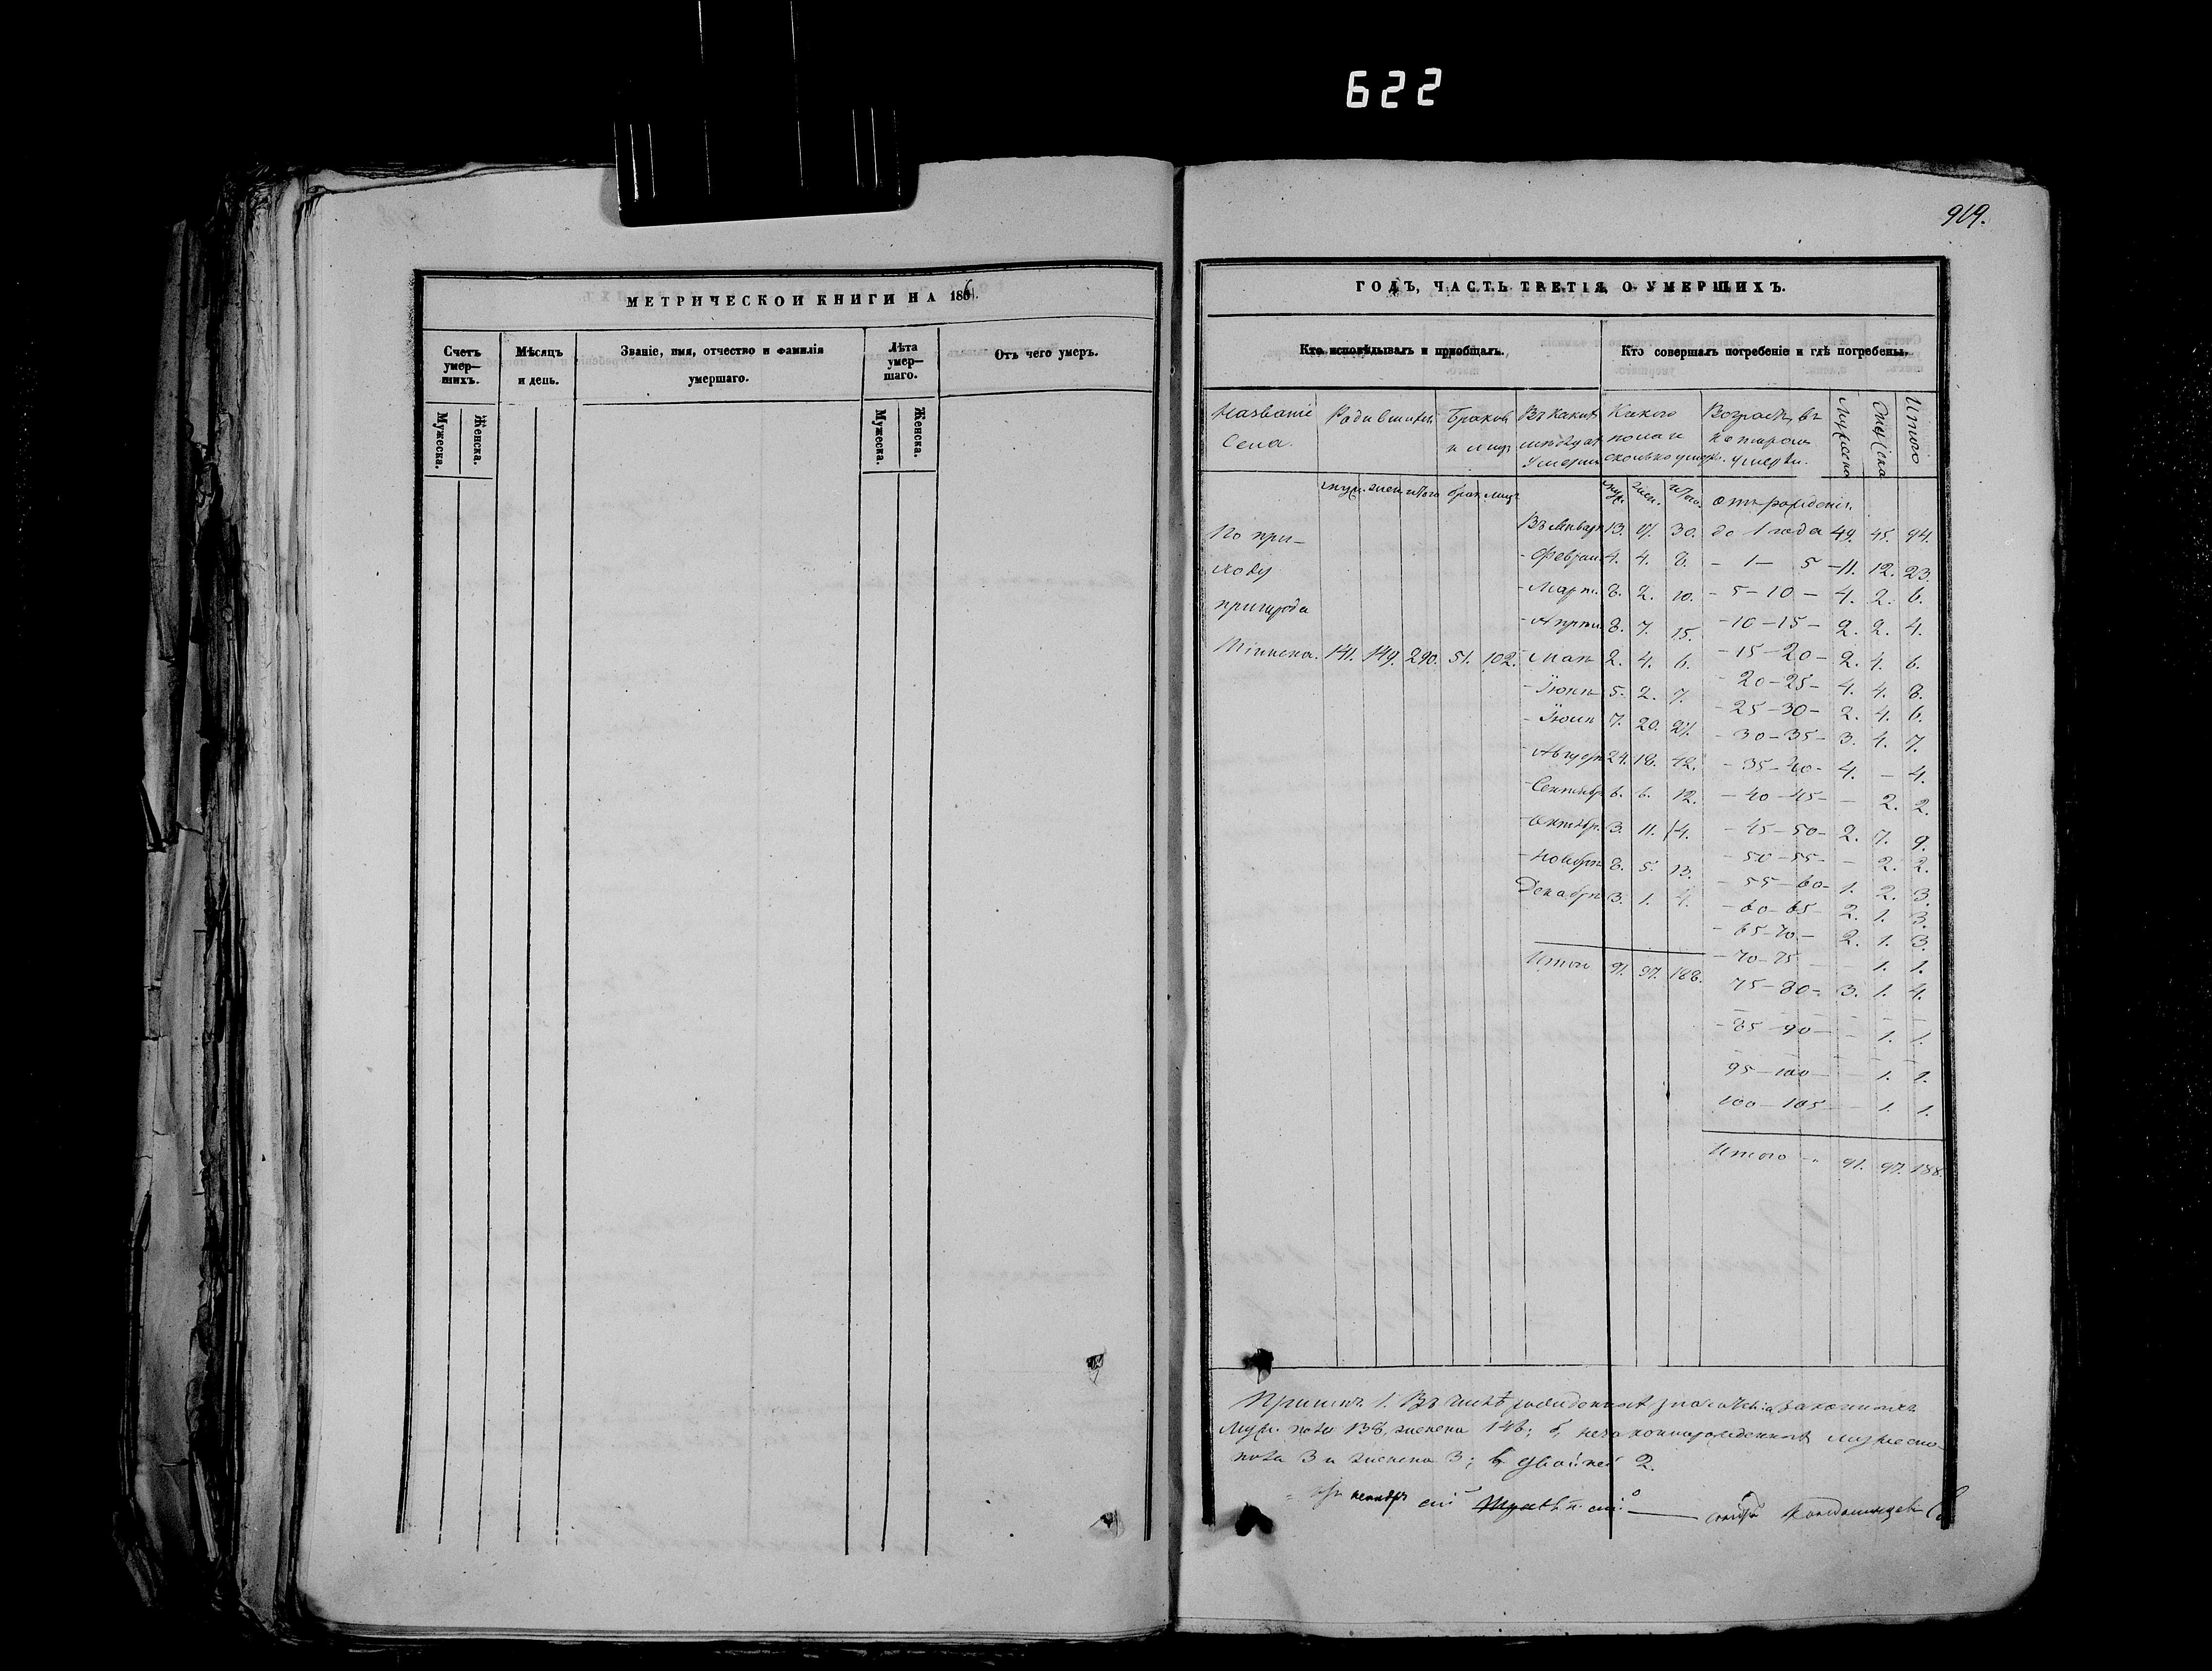 622
919.
МЕТРИЧЕСКОЙ КНИГИ НА 1861.
Счетъ умер—шихъ.
Мужеска. Женска.
Мѣсяцъ и день.
Званіе, имя, отчество и фамилія умершаго.
Лѣта умер—шаго.
Мужеска. Женска.
Отъ чего умеръ.
ГОДЪ, ЧАСТЬ ТРЕТІЯ, О УМЕРШИХЪ.
Кто исповѣдывалъ и пріобщалъ.
Кто совершалъ погребеніе и гдѣ погребены.
Названіе Села.
Родившихся
муж. жен. итого
Браковъ и лицъ
брак. лицъ
Въ какихъ мѣсяцахъ умерли
Какого пола и сколько умерло.
муж. жен. итого.
Возрастъ, въ которомъ умерли.
Мужеска Женска Итого
По при—
ходу
пригорода
Тіинска. 141. 149. 290. 51. 102.
Въ Январѣ 13. 17. 30.
- Феврал. 4. 4. 8.
- Март. 8. 2. 10.
- Апрѣл. 8. 7. 15.
- Маѣ 2. 4. 6.
- Іюнѣ 5. 2. 7.
- Іюлѣ 7. 20. 27.
- Августѣ 24. 18. 42.
- Сентябр. 6. 6. 12.
- Октябр. 3. 11. 14.
- Ноябрѣ 8. 5. 13.
Декабрѣ 3. 1. 4.
Итого 91. 97. 188.
отъ рожденія
до 1 года 49. 45. 94.
- 1 — 5 — 11. 12. 23.
- 5 — 10 — 4. 2. 6.
- 10 — 15 — 2. 2. 4.
- 15 — 20 — 2. 4. 6.
- 20 — 25 — 4. 4. 8.
- 25 — 30 — 2. 4. 6.
- 30 — 35 — 3. 4. 7.
- 35 — 40 — 4. — 4.
- 40 — 45 — — 2. 2.
- 45 — 50 — 2. 7. 9.
- 50 — 55 — — 2. 2.
- 55 — 60 — 1. 2. 3.
- 60 — 65 — 2. 1. 3.
- 65 — 70 — 2. 1. 3.
- 70 — 75 — — 1. 1.
75 — 80 — 3. 1. 4.
- 85 — 90 — — 1. 1.
95 — 100 — — 1. 1.
100 — 105 — — 1. 1.
Итого - 91. 97. 188.
Примѣч. 1. Въ числѣ рожденныхъ законныхъ
муж. пола 138, женска 146; б, незаконнорожденныхъ мужеска
пола 3 и женска 3; в, двойней 2.